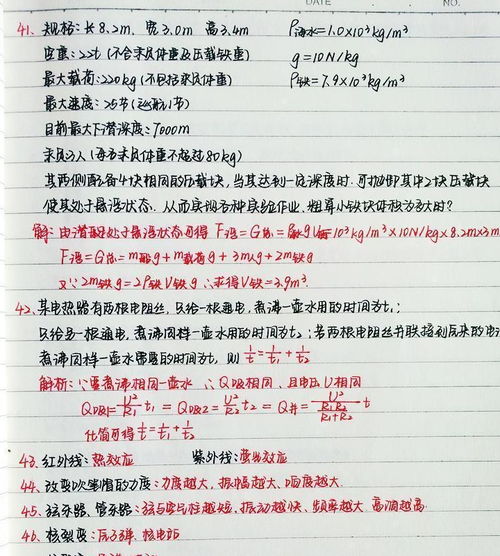 DATE NO.
41、规格：长8.2m、宽3.0m 高3.4m ρ海水=1.0×10³kg/m³
空重：22t（不含乘员体重及压载铁重） g=10N/kg
最大载荷：220kg（不包括乘员体重） ρ铁=7.9×10³kg/m³
最大速度：25节（巡航1节）
目前最大下潜深度：7000m
乘员3人（每名乘员体重不超过80kg）
其两侧配备4块相同的压载铁，当其达到一定深度时，可抛卸其中2块压载铁
使其处于悬浮状态，从而实现各种实验作业，粗算小铁块体积为多大时？
解：由潜艇处于悬浮状态可得 F浮=G总=ρ水gV排=10³kg/m³×10N/kg×8.2m×3m
F浮=G总=m艇g+m载荷g+3m人g+2m铁g
又∵2m铁g=2ρ铁V铁g ∴求得V铁=3.9m³.
42、某电热器有两根电阻丝，只给一根通电，煮沸一壶水用的时间为t₁；
只给另一根通电，煮沸同样一壶水用的时间为t₂；若两根电阻丝并联接到原来的电
煮沸同样一壶水需要的时间为t，则 1/t=1/t₁+1/t₂
解析：∵要煮沸相同一壶水 ∴Q吸相同，且电压U相同
Q吸1=U²/R₁ t₁=Q吸2=U²/R₂ t₂=Q并=U²/(R₁R₂/(R₁+R₂)) t
化简可得1/t=1/t₁+1/t₂
43、红外线：热效应 紫外线：荧光效应
44、改变吹笔帽的力度：力度越大，振幅越大，响度越大.
45、弦乐器、管乐器：弦与空气柱越短，振动越快、频率越大 音调越高.
46、核裂变：原子弹、核电站